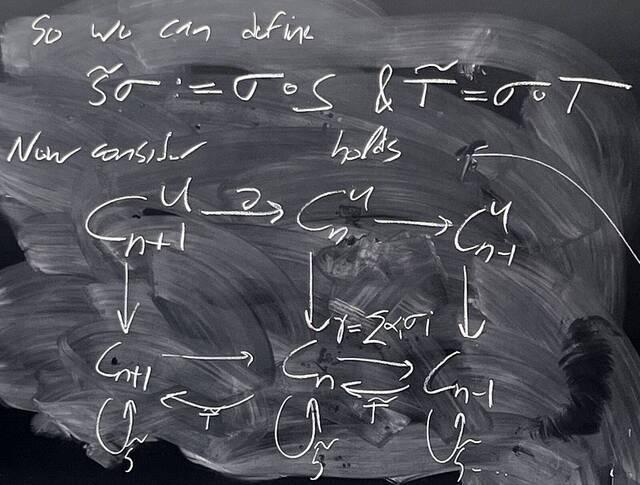 So we can define
S̃σ := σ∘S & T̃ = σ∘T
Now consider holds
C^U_{n+1} —∂→ C^U_n → C^U_{n-1}
γ = Σαᵢσᵢ
C_{n+1} C_n C_{n-1}
T̃ T̃
S̃ S̃ S̃ ...